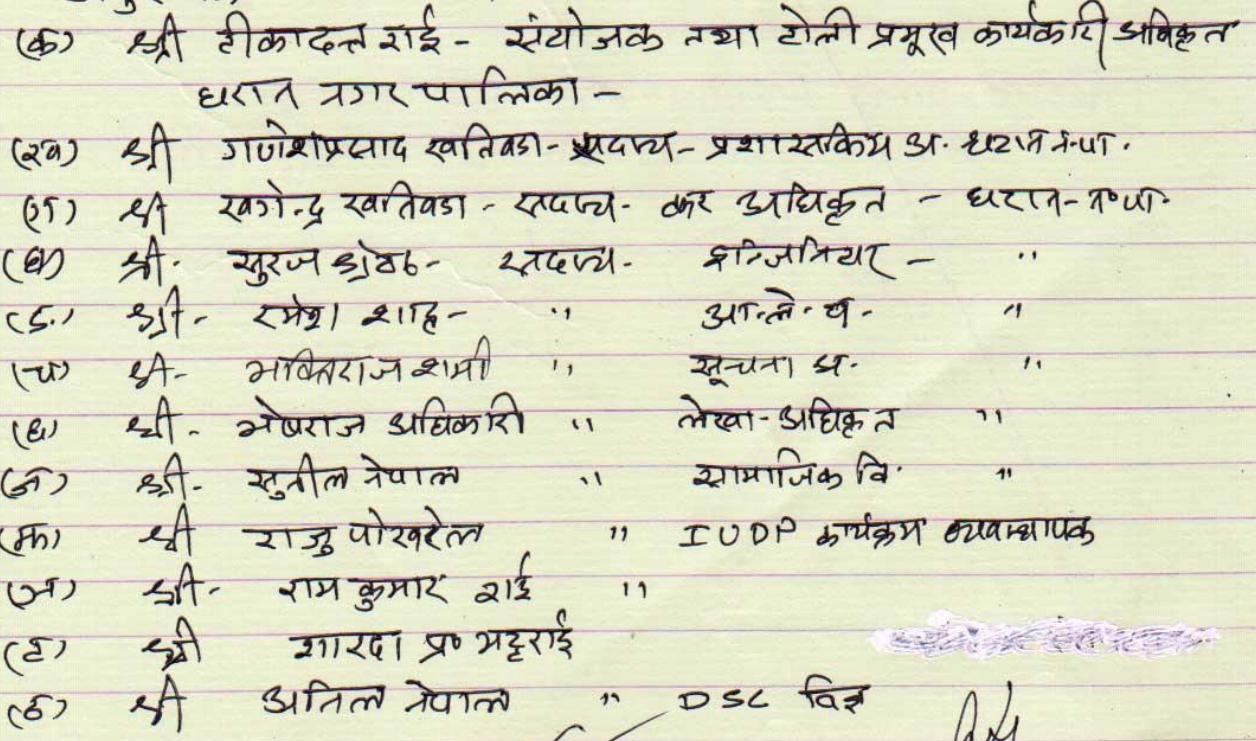 (क) श्री टीकादत्त राई - संयोजक तथा टोली प्रमूख कार्यकारी अधिकृत
धरान नगरपालिका -
(ख) श्री गणेशप्रसाद खतिवडा - सदस्य - प्रशासकिय अ. धरान न.पा.
(ग) श्री खगेन्द्र खतिवडा - सदस्य - कर अधिकृत - धरान - न॰पा.
(घ) श्री. सुरज श्रेष्ठ - सदस्य - इन्जिनियर - "
(ङ) श्री - रमेश शाह - " आ.ले.प. "
(च) श्री - भक्तिराज शर्मा " सूचना अ. "
(छ) श्री - मेषराज अधिकारी " लेखा - अधिकृत "
(ज) श्री - सुनील नेपाल " सामाजिक वि. "
(झ) श्री राजु पोखरेल " IUDP कार्यक्रम व्यवस्थापक
(ञ) श्री - राम कुमार राई "
(ट) श्री शारदा प्र॰ भट्टराई
(ठ) श्री अनिल नेपाल " DSC विज्ञ